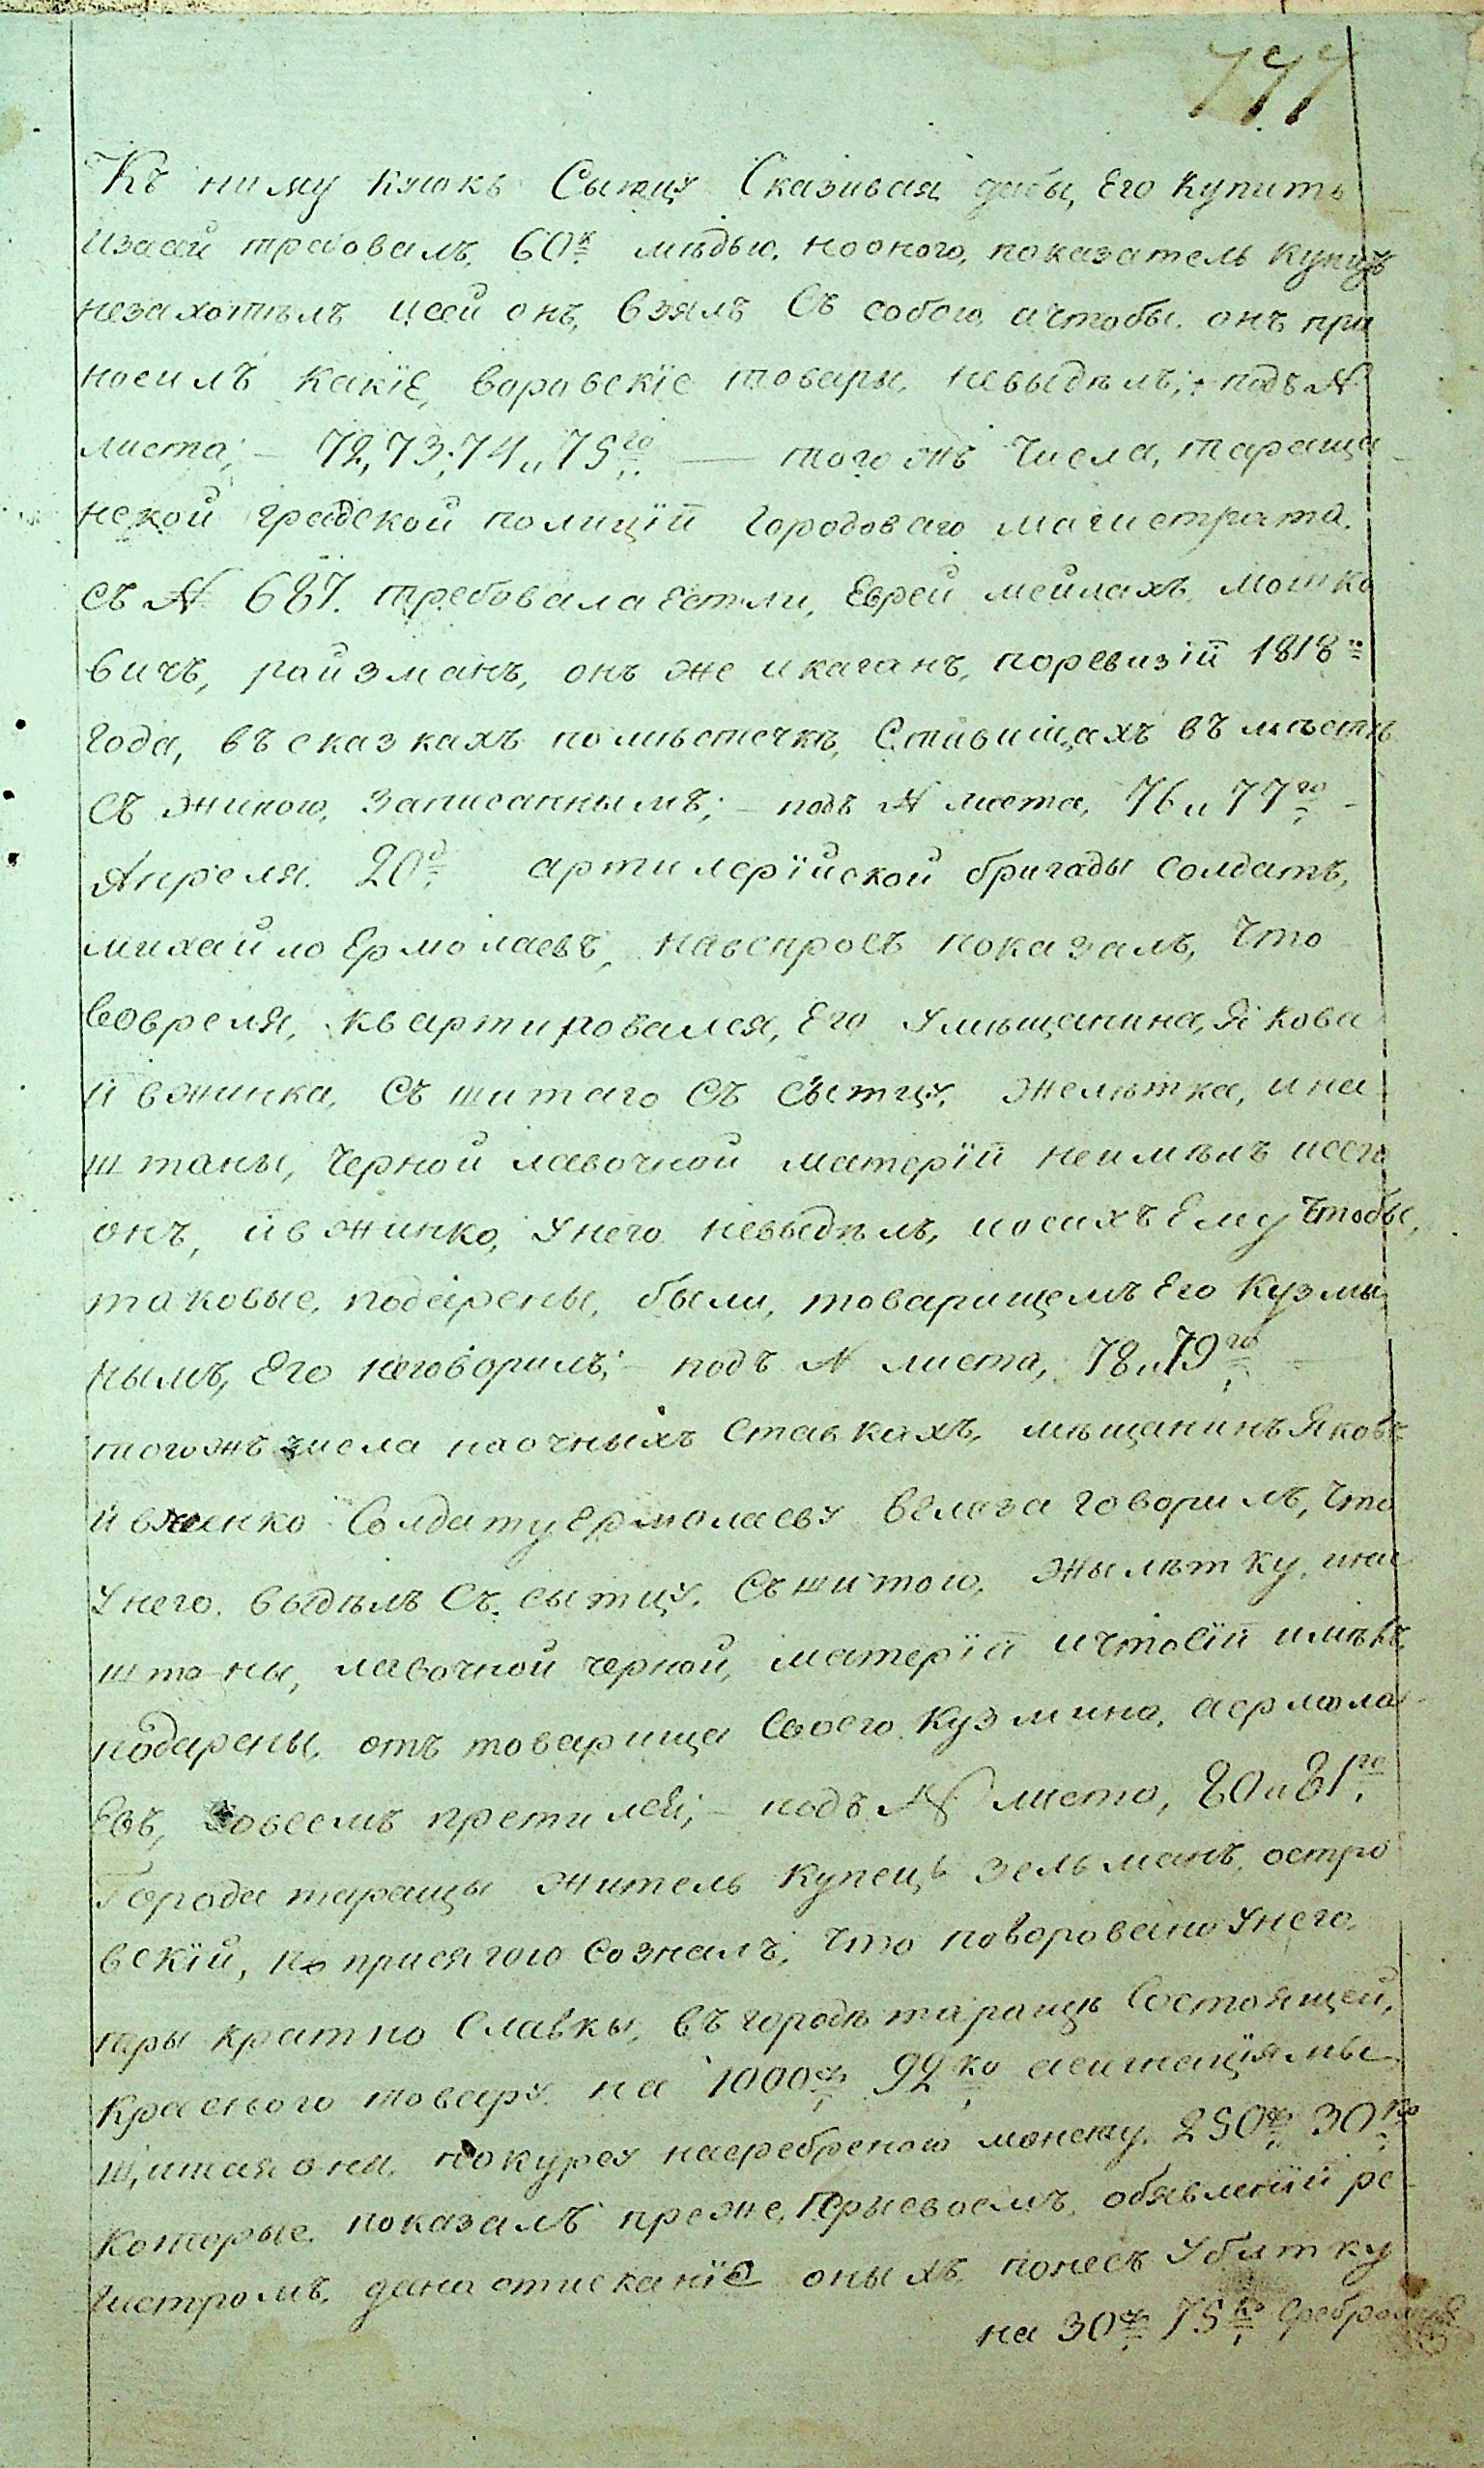 777
Къ нимy кусокъ Сытцу Сказивая дабы, Его Купить
Изаей требовалъ, 60к мѣдью, нооного, показатель Купить
незахотѣлъ исей онъ, взялъ Съ собою, ачтобы, онъ при
носилъ какїе, воровскїе товары, невыдѣлъ; подъ №
листа; – 72, 73, 74 и 75го. — того жъ Числа, тараща
нской градской полицїи Городоваго магистрата.
съ № 687. требовала Естли, Еврей мейлахъ, мошко
вичъ, ройзманъ, онъ же икаганъ, поревизїи 1818го
Года, въ сказкахъ помѣстечкѣ, Ставищахъ въ мѣстѣ
Съ жиною, записаннымъ; – подъ № листа, 76 и 77го –
Апреля. 20д. артилерїйской бригады Солдатъ,
михайло Ермолаевъ, навспросъ показалъ, Что
вовремя, квартировался, Его Умѣщанина, Якова
ивжинка, Съ шитаго Съ Сытцу, Желѣтка, ина
штаны, Черной лавочной матерїи неимѣлъ исего
онъ, ивжинко, Унего невыдѣлъ, иосихъ Ему Чтобы,
таковые, подарены, были, товарищемъ Его Кузмы
нымъ, Его неговорилъ; – подъ № листа, 78 и 79го –
тогожъ числа наочныхъ Ставкахъ, мѣщанинъ Яковъ
ивженко Солдату Ермолаеву вглаза Говорилъ, Что
Унего, выдѣлъ Съ сытцу, Съшитою, Жылѣтку, ина
штаны, лавочной черной, матерїи ичтосїи имѣлъ,
подарены, отъ товарища Своего Кузмина, аермола
Евъ, Совсемъ претился; – подъ № листа, 80 и 81го,
Города таращы житель Купецъ Зельманъ, остро
вскїй, по присягою Созналъ, Что поворовано Унего,
тры кратно Славкы, въ городѣ таращѣ Состоящей,
Красного товару, на 1000ру 92ко асигнацїямы
щитая оны, покурсу насребреною монету, 250ру 30ко
Которые, показалъ преже, Прысвоемъ, обявленїи ре
гистромъ, дана отисканїе оныхъ, понесъ Убытку
на 30ру 75ко Сребромъ